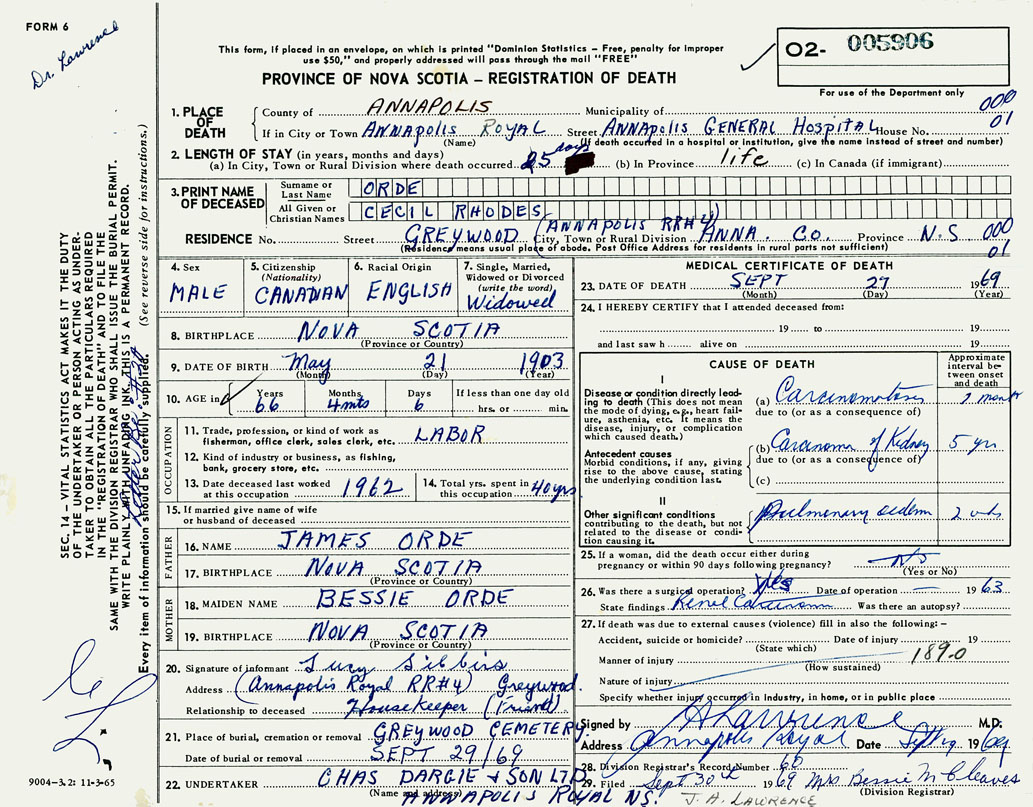 FORM 6
Dr. Lawrence
This form, if placed in an envelope, on which is printed "Dominion Statistics – Free, penalty for improper
use $50," and properly addressed will pass through the mail "FREE"
PROVINCE OF NOVA SCOTIA – REGISTRATION OF DEATH
02- 005906
For use of the Department only
1. PLACE OF DEATH County of ANNAPOLIS Municipality of 000
If in City or Town ANNAPOLIS ROYAL Street ANNAPOLIS GENERAL HOSPITAL House No. 01
(Name) (If death occurred in a hospital or institution, give the name instead of street and number)
2. LENGTH OF STAY (in years, months and days)
(a) In City, Town or Rural Division where death occurred 25 days (b) In Province life (c) In Canada (if immigrant)
3. PRINT NAME OF DECEASED
Surname or Last Name ORDE
All Given or Christian Names CECIL RHODES
(ANNAPOLIS RR#4)
RESIDENCE No. Street GREYWOOD City, Town or Rural Division ANNA. CO. Province N.S 000
(Residency means usual place of abode. Post Office Address for residents in rural parts not sufficient) 01
4. Sex MALE
5. Citizenship (Nationality) CANADIAN
6. Racial Origin ENGLISH
7. Single, Married, Widowed or Divorced (write the word) Widowed
8. BIRTHPLACE NOVA SCOTIA
(Province or Country)
9. DATE OF BIRTH May 21 1903
(Month) (Day) (Year)
10. AGE in Years 66 Months 4 mts Days 6 If less than one day old hrs. or min.
OCCUPATION
11. Trade, profession, or kind of work as fisherman, office clerk, sales clerk, etc. LABOR
12. Kind of industry or business, as fishing, bank, grocery store, etc.
13. Date deceased last worked at this occupation 1962
14. Total yrs. spent in this occupation 40 yrs
15. If married give name of wife or husband of deceased
FATHER
16. NAME JAMES ORDE
17. BIRTHPLACE NOVA SCOTIA
(Province or Country)
MOTHER
18. MAIDEN NAME BESSIE ORDE
19. BIRTHPLACE NOVA SCOTIA
(Province or Country)
20. Signature of informant Lucy
Address (Annapolis Royal RR#4) Greywood.
Relationship to deceased Housekeeper (Friend)
21. Place of burial, cremation or removal GREYWOOD CEMETERY.
Date of burial or removal SEPT 29/69
22. UNDERTAKER CHAS DARGIE & SON LTD.
(Name and address) ANNAPOLIS ROYAL NS.
MEDICAL CERTIFICATE OF DEATH
23. DATE OF DEATH SEPT 27 1969
(Month) (Day) (Year)
24. I HEREBY CERTIFY that I attended deceased from:
19 to 19
and last saw h alive on 19
CAUSE OF DEATH
Approximate interval between onset and death
I
Disease or condition directly leading to death (This does not mean the mode of dying, e.g., heart failure, asthenia, etc. It means the disease, injury, or complication which caused death.)
(a) Carcinomatosis
due to (or as a consequence of)
Antecedent causes
Morbid conditions, if any, giving rise to the above cause, stating the underlying condition last.
(b) Carcinoma of Kidney 5 yrs
due to (or as a consequence of)
(c)
II
Other significant conditions contributing to the death, but not related to the disease or condition causing it.
Pulmonary oedema 2
25. If a woman, did the death occur either during pregnancy or within 90 days following pregnancy? No
(Yes or No)
26. Was there a surgical operation? Yes Date of operation 1963
State findings Renal Carcinoma Was there an autopsy?
27. If death was due to external causes (violence) fill in also the following: –
Accident, suicide or homicide? Date of injury 19
(State which)
Manner of injury 189.0
(How sustained)
Nature of injury
Specify whether injury occurred in Industry, in home, or in public place
Signed by Lawrence M.D.
Address Annapolis Royal Date 1969
28. Division Registrar's Record Number 60
29. Filed Sept 30th 1969 Mrs Bessie McCleaves
(Division Registrar)
J. A. LAWRENCE
SEC. 14 – VITAL STATISTICS ACT MAKES IT THE DUTY
OF THE UNDERTAKER OR PERSON ACTING AS UNDER-
TAKER TO OBTAIN ALL THE PARTICULARS REQUIRED
IN THE "REGISTRATION OF DEATH" AND TO FILE THE
SAME WITH THE DIVISION REGISTRAR WHO SHALL ISSUE THE BURIAL PERMIT.
WRITE PLAINLY WITH UNFADING INK. THIS IS A PERMANENT RECORD.
Every item of information should be carefully supplied. (See reverse side for instructions.)
9004-3.2: 11-3-65